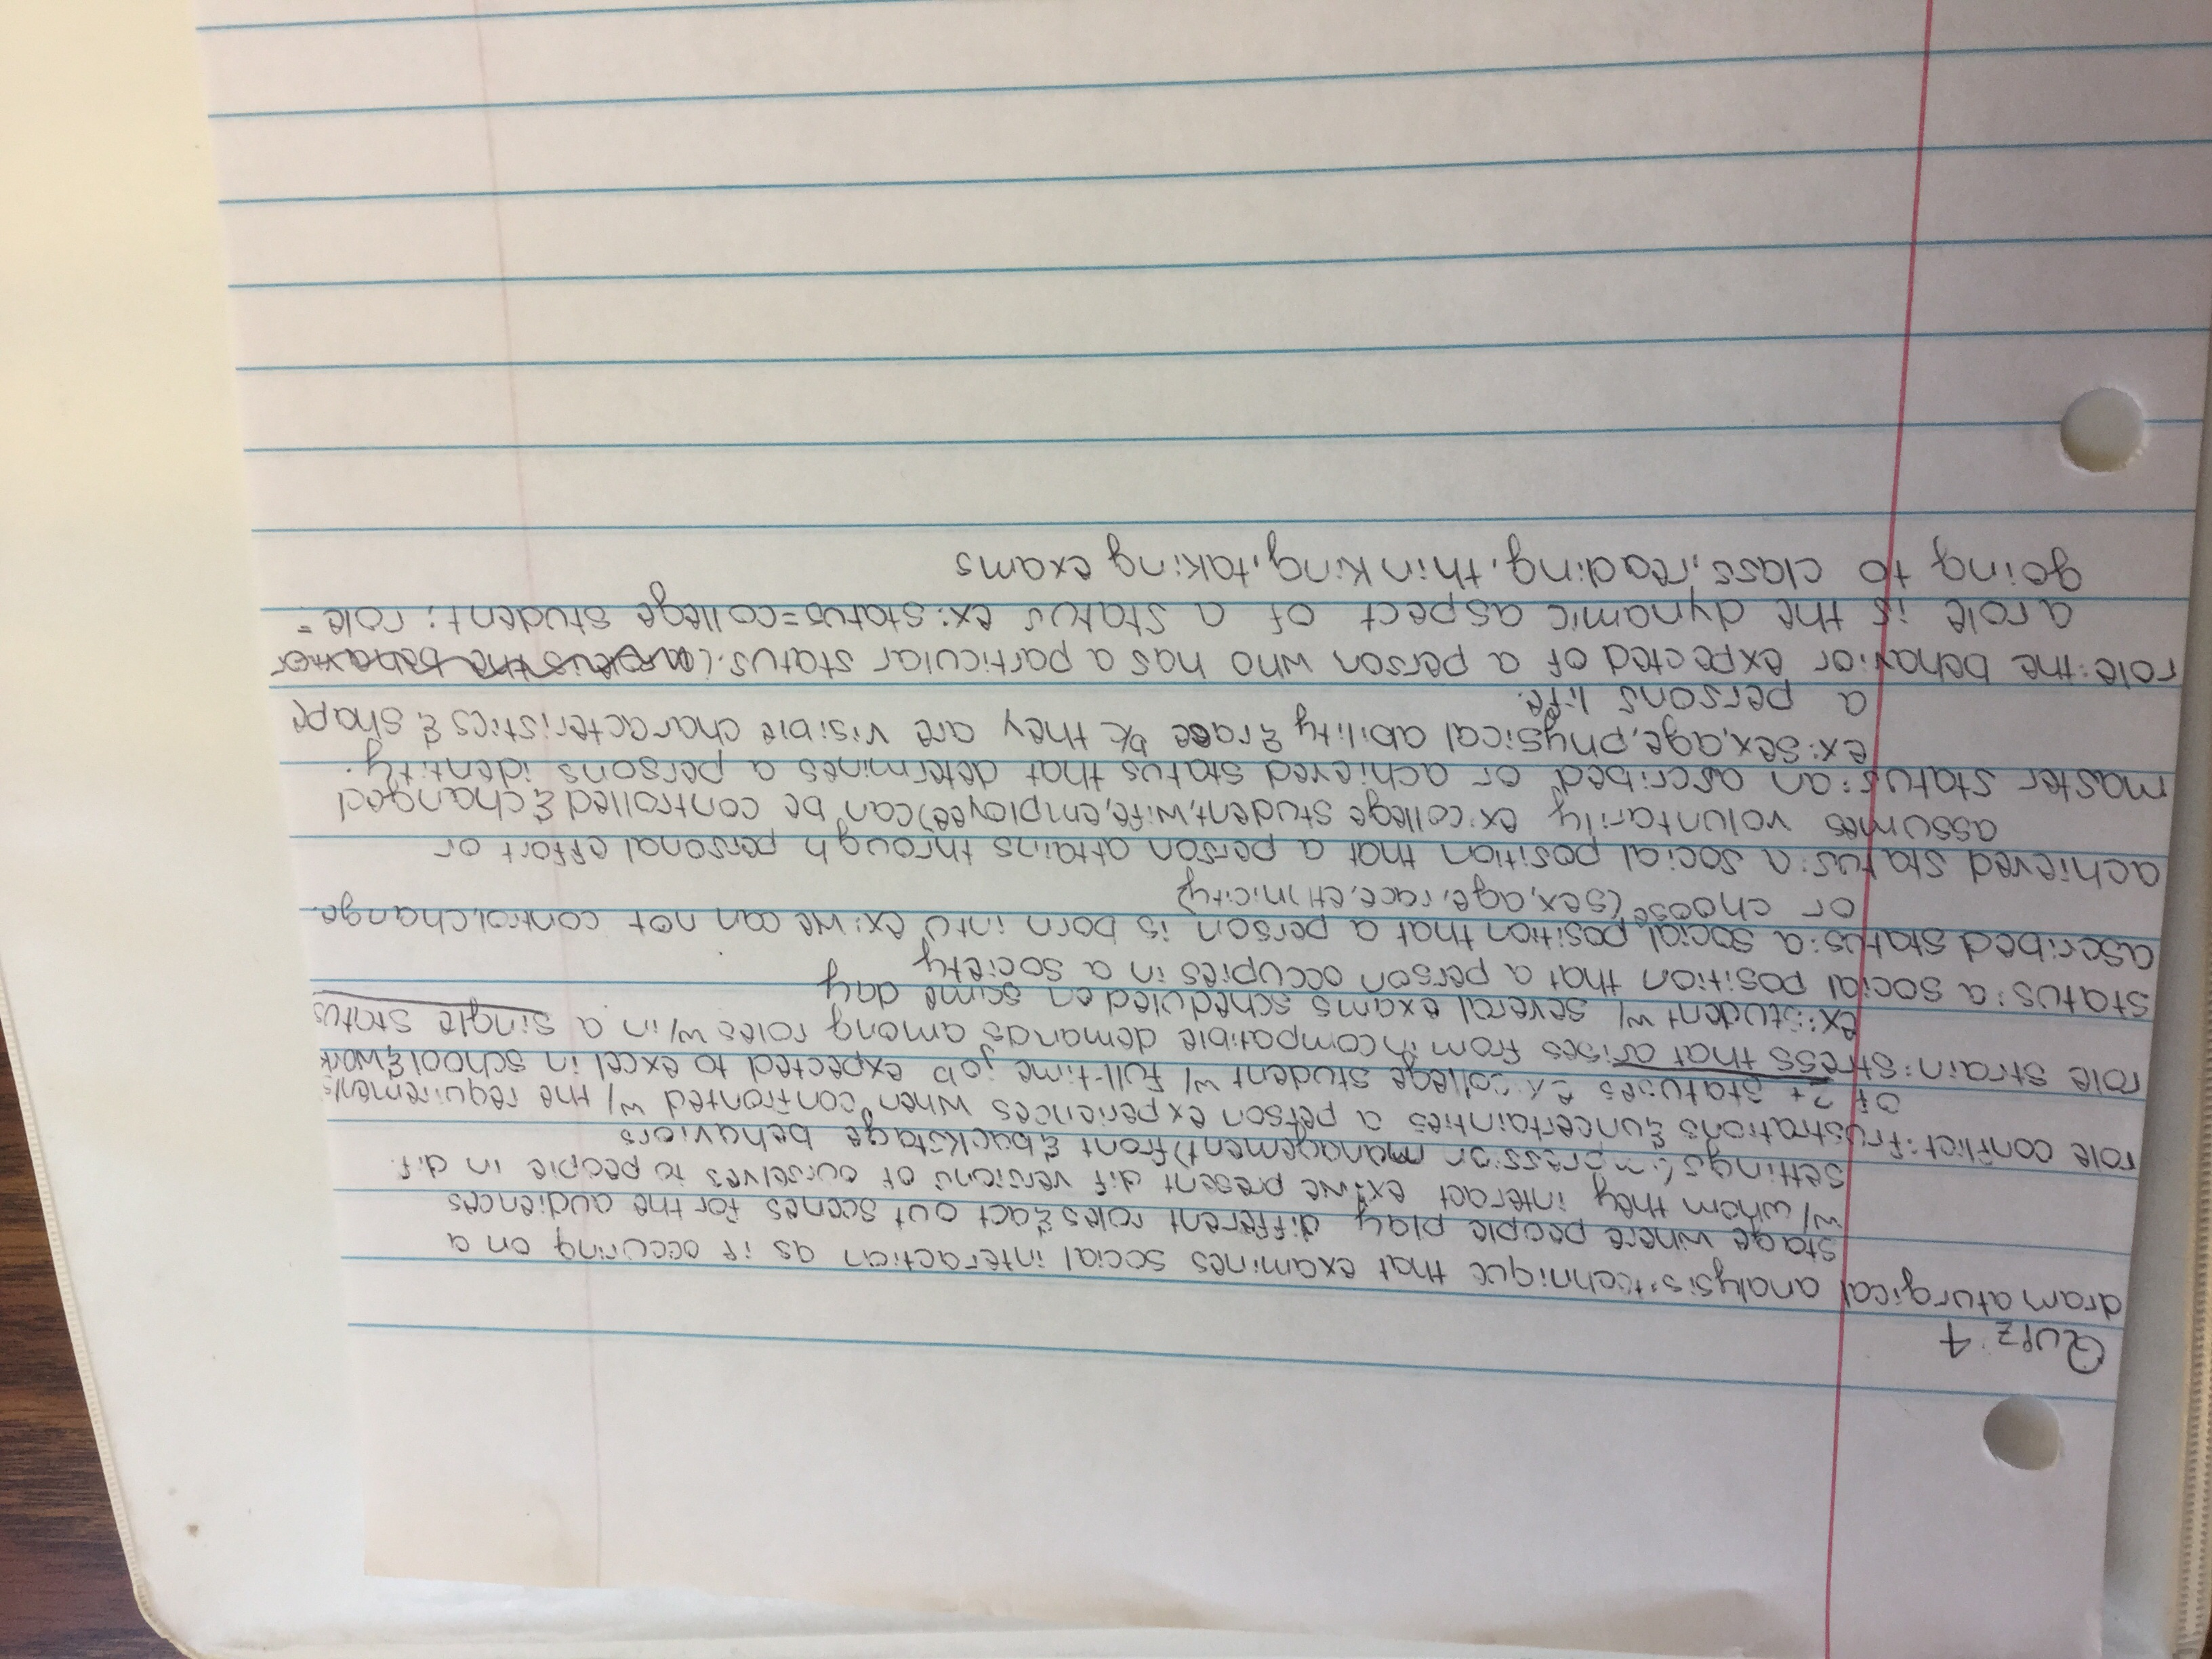 Quiz 4
dramaturgical analysis: technique that examines social interaction as if occuring on a
stage where people play different roles & act out scenes for the audiences
w/ whom they interact ex: we present dif versions of ourselves to people in dif.
settings (impression management) front & backstage behaviors
role conflict: frustrations & uncertainties a person experiences when confronted w/ the requirements
of 2+ statuses ex: college student w/ full-time job expected to excel in school & work
role strain: stress that arises from incompatible demands among roles w/in a single status
ex: student w/ several exams scheduled on same day
status: a social position that a person occupies in a society
ascribed status: a social position that a person is born into ex: we can not control, change
or choose (sex, age, race, ethnicity)
achieved status: a social position that a person attains through personal effort or
assumes voluntarily ex: college student, wife, employee) can be controlled & changed
master status: an ascribed or achieved status that determines a persons identity.
ex: sex, age, physical ability & race b/c they are visible characteristics & shape
a persons life.
role: the behavior expected of a person who has a particular status.
a role is the dynamic aspect of a status ex: status = college student; role =
going to class, reading, thinking, taking exams